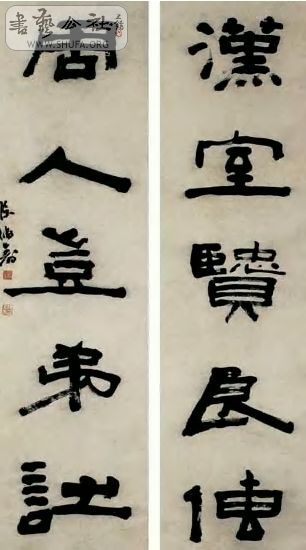 漢室賢良傳
周人豈弟詩
陳鴻壽
書藝公社
WWW.SHUFA.ORG